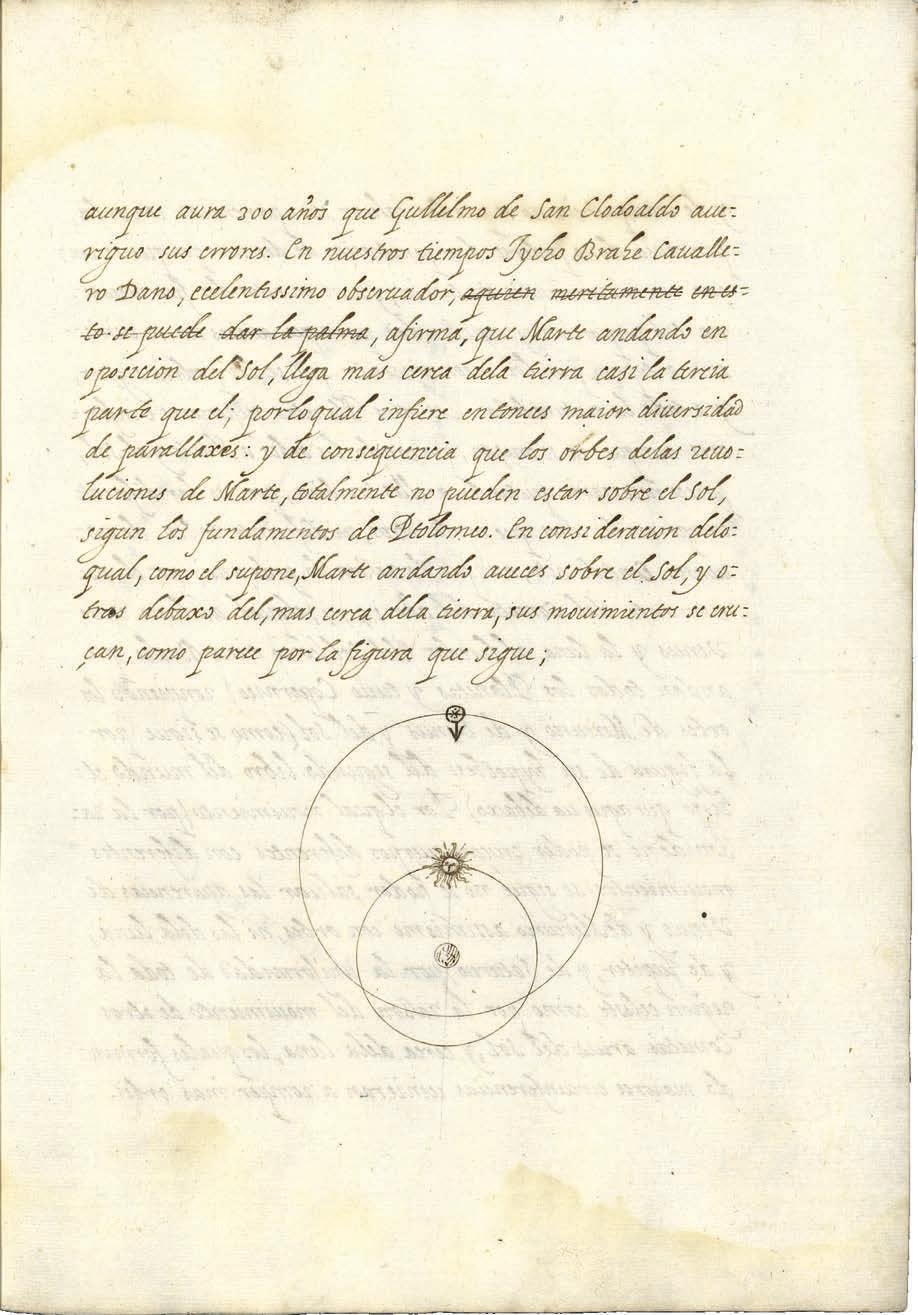 aunque aura 300 años que Gullelmo de San Clodoaldo aue=
riguo sus errores. En nuestros tiempos Tycho Brahe Cavalle=
ro Dano, ecelentissimo obseruador, aquien meritamente en es=
to se puede dar la palma, afirma, que Marte andando en
oposicion del Sol, llega mas cerca dela tierra casi la tercia
parte que el; porloqual infiere entonces maior diversidad
de parallaxes: y de consequencia que los orbes delas reuo=
luciones de Marte, totalmente no pueden estar sobre el Sol,
sigun los fundamentos de Ptolomeo. En consideracion delo=
qual, como el supone, Marte andando aueces sobre el Sol, y o=
tras debaxo del, mas cerca dela tierra, sus mouimientos se cru=
çan, como parece por la figura que sigue;